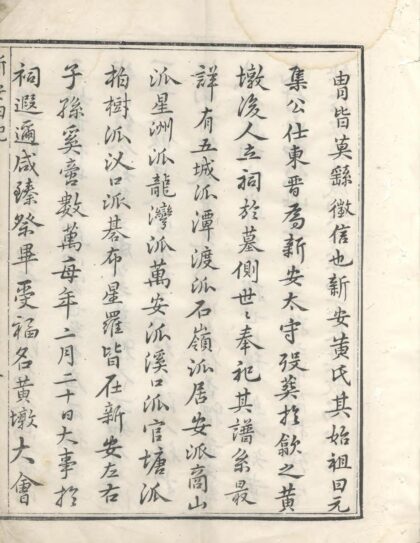 胄皆莫繇徵信也新安黄氏其始祖曰元
集公仕東晉爲新安太守殁葬扵歙之黄
墩後人立祠於墓側世〻奉祀其譜系最
詳有五城派潭渡派石嶺派居安派商山
派星洲派龍灣派萬安派溪口派官塘派
柏樹派汊口派碁布星羅皆在新安左右
子孫奚啻數萬每年二月二十日大事扵
祠遐邇咸臻祭畢受福名黄墩大會